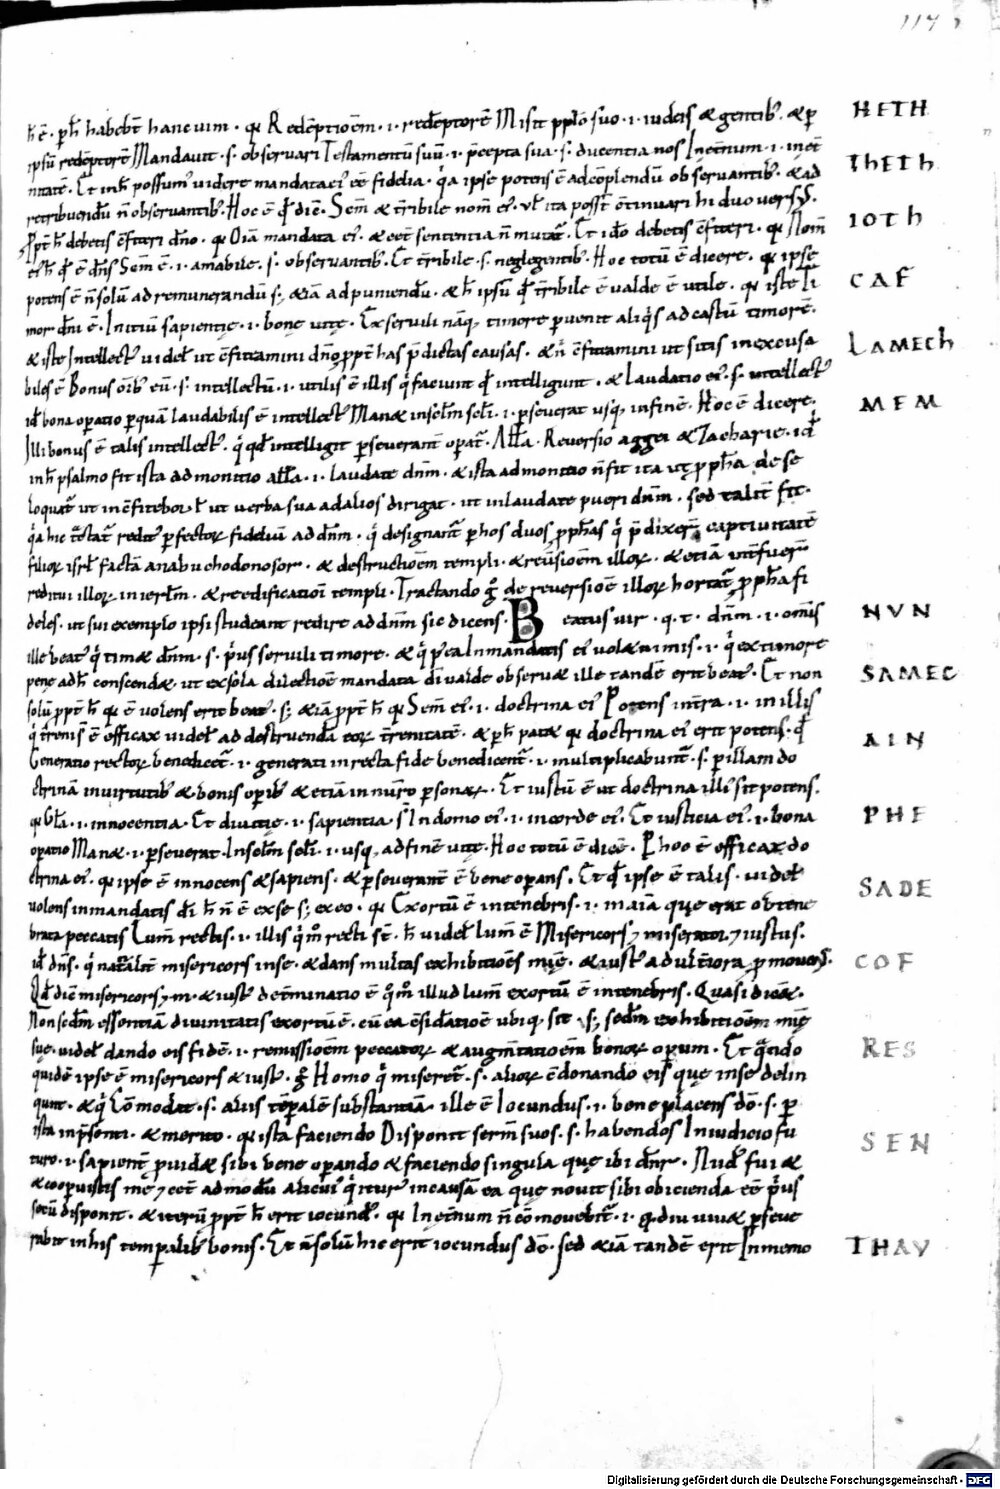 117
h̄ ē · ꝑ h̄ habeb̄t hanc uim · qꝛ Redēptioēm · i · redēptorē Misit ppl̄o suo · i · iudeis & gentib; · & ꝑ HETH
ipsū redēptorē Mandauit · s · obseruari Testamentū suū · i · p̄cepta sua · s · ducentia nos In et̄num · i · in et̄
nitatē · Et in h̄ possum; uidere mandata ei; ēē fidelia · q̇a ipse potens ē ad coplendū obseruantib; · & ad THETH
retribuendū n̄ obseruantib; · Hoc ē qđ dic̄ · Scm̄ & tribile nom̄ ei; · ul̄ ita poss̄t continuari hi duo uersus
ꝓpt̄ h̄ debetis cfiteri dn̄o · qꝛ Oīa mandata ei; · & cet̄ sententia n̄ mutat̄ · Et iđo debetis cfiteri · qꝛ Nom̄ IOTH
ei; h̄ qđ ē dn̄s Scm̄ ē · i · amabile · s · obseruantib; · Et tribile · s · neglegentib; · Hoc totū ē dicere · qꝛ ipse
potens ē n̄ solū ad remunerandū s; · & iā ad puniendū · & h̄ ipsū qđ tribile ē ualde ē utile · qꝛ iste ti CAF
mor dn̄i ē · Initiū sapientię · i · bonę uitę · Ex seruili nāq; timore ꝑuenit aliq̇s ad castū timorē ·
& iste Intellect; uidel̄ ut cfiteamini dn̄o ꝓpt̄ has p̄dictas causas · & n̄ cfiteamini ut sitis inexcusa LAMECH
biles ē Bonus oīb; eū · s · intellectū · i · utilis ē illis q̇ faciunt qđ intelligunt · & Laudatio ei; · s · intellect;
iđ bona operatio ꝑ quā laudabilis ē intellect; Man& in sc̄lm sc̄li · i · ꝑseuerat usq; in finē · Hoc ē dicere · MEM
Illi bonus ē talis intellect; · q̇ qđ intelligit ꝑseuerant̄ oꝑat̄ · All̄a · Reuersio aggei & Zacharie · iđ
in h̄ psalmo fit ista admonitio all̄a · i · laudate dn̄m · & ista admonitio n̄ fit ita ut ꝓph̄a de se
loquat̄ ut in cfitebor · ł ut uerba sua ad alios dirigat · ut in laudate pueri dn̄m · sed talit̄ fit ·
q̇a hic t̄ctat̄ redit; ꝑfectoꝝ fideliū ad dn̄m · q̇ designant̄ ꝑ hos duos ꝓph̄as q̇ p̄dixer̄ captiuitatē
filioꝝ isrl̄ factā a nabuchodonosor · & destructioēm templi · & reuersioēm illoꝝ · & etiā int̄fuer̄
reditui illoꝝ in ierl̄m · & reedificatioī templi · Tractando g̊ de reuersioē illoꝝ hortat̄ ꝓph̄a fi
deles · ut sui exemplo ipsi studeant redire ad dn̄m sic dicens · Beatus uir · q · t · dn̄m · i · om̄is NVN
ille beat; q̇ tim& dn̄m · s · p̄us seruili timore · & q̇ p̄ea In mandatis ei; uol& nimis · i · q̇ ex timore
penę ad h̄ conscend& · ut ex sola dilectioē mandata dī ualde obseru& ille tandē erit beat; · Et non SAMEC
solū ꝓpt̄ h̄ qꝛ ē uolens erit beat; · s; & iā ꝓpt̄ h̄ qꝛ Sem̄ ei; · i · doctrina ei; Potens in t̄ra · i · in illis
q̇ t̄renis ē efficax uidel̄ ad destruendā eoꝝ t̄renitatē · & ꝑ h̄ pat& qꝛ doctrina ei; erit potens · qđ AIN
Generatio rectoꝝ benedicet̄ · i · generati in recta fide benedicent̄ · i · multiplicabunt̄ · s · ꝑ illam do
ctrinā in uirtutib; & bonis oꝑib; & etiā in num̄o ꝑsonaꝝ · Et iustū ē ut doctrina illi; sit potens ·
qꝛ Gl̄a · i · innocentia · Et diuitię · i · sapientia s̄ In domo ei; · i · in corde ei; · Et iusticia ei; · i · bona PHE
oꝑatio Man& · i · ꝑseuerat · In sc̄lm sc̄li · i · usq; ad finē uitę · Hoc totū ē dicē · ꝑ hoc ē efficax do
ctrina ei; · qꝛ ipse ē innocens & sapiens · & ꝑseuerant̄ ē bene oꝑans · Et qđ ipse ē talis · uidel̄
uolens in mandatis dī h̄ n̄ ē ex se s; ex eo · qꝛ Exortū ē in tenebris · i · in aīa quę erat obtene SADE
brata peccatis Lum̄ rectis · i · illis q̇ m̊ recti st̄ · h̄ uidel̄ lum̄ ē Misericors ⁊ miserator ⁊ iustus ·
iđ dn̄s · q̇ nat̄alit̄ misericors in se · & dans multas exhibitiōēs mię · & iust; ad ult̄iora ꝓmouens · COF
Qđ dic̄ misericors ⁊ m · & iust; det̄minatio ē q̊m̊ illud lum̄ exortū ē in tenebris · Quasi dicat ·
Non scđm essentiā diuinitatis exortū ē · cū ea csidatioē ubiq; sit · s; scđm exhibitioēm mię
suę · uidel̄ dando eis fidē · i · remissioēm peccatoꝝ & augmn̄tatioēm bonoꝝ oꝑum · Et q̄ndo RES
quidē ipse ē misericors & iust; · g̊ Homo q̇ miseret̄ · s · alioꝝ cdonando eis quę in se delin
qunt · & q̇ Cōmodat · s · aliis tēꝑalē substantiā · ille ē Iocundus · i · bene placens dō · s · ꝑ
ista in p̄senti · & merito · qꝛ ista faciendo Disponit serm̄ suos · s · habendos In iudicio fu SEN
turo · i · sapient̄ ꝓuid& sibi bene oꝑando & faciendo singula quę ibi dn̄r · Nud; fui &
& cooꝑuistis me ⁊ cet̄ ad modū alicui; q̇ itur; in causā ea quę nouit sibi obicienda ēē p̄us
secū disponit · & iterū ꝓpt̄ h̄ erit iocund; · qꝛ In et̄num n̄ cōmouebit̄ · i · qdiu uiu& ꝑseue
rabit in his temꝑalib; bonis · Et n̄ solū hic erit iocundus dō · sed & iā tandē erit In memo THAV
Digitalisierung gefördert durch die Deutsche Forschungsgemeinschaft - DFG